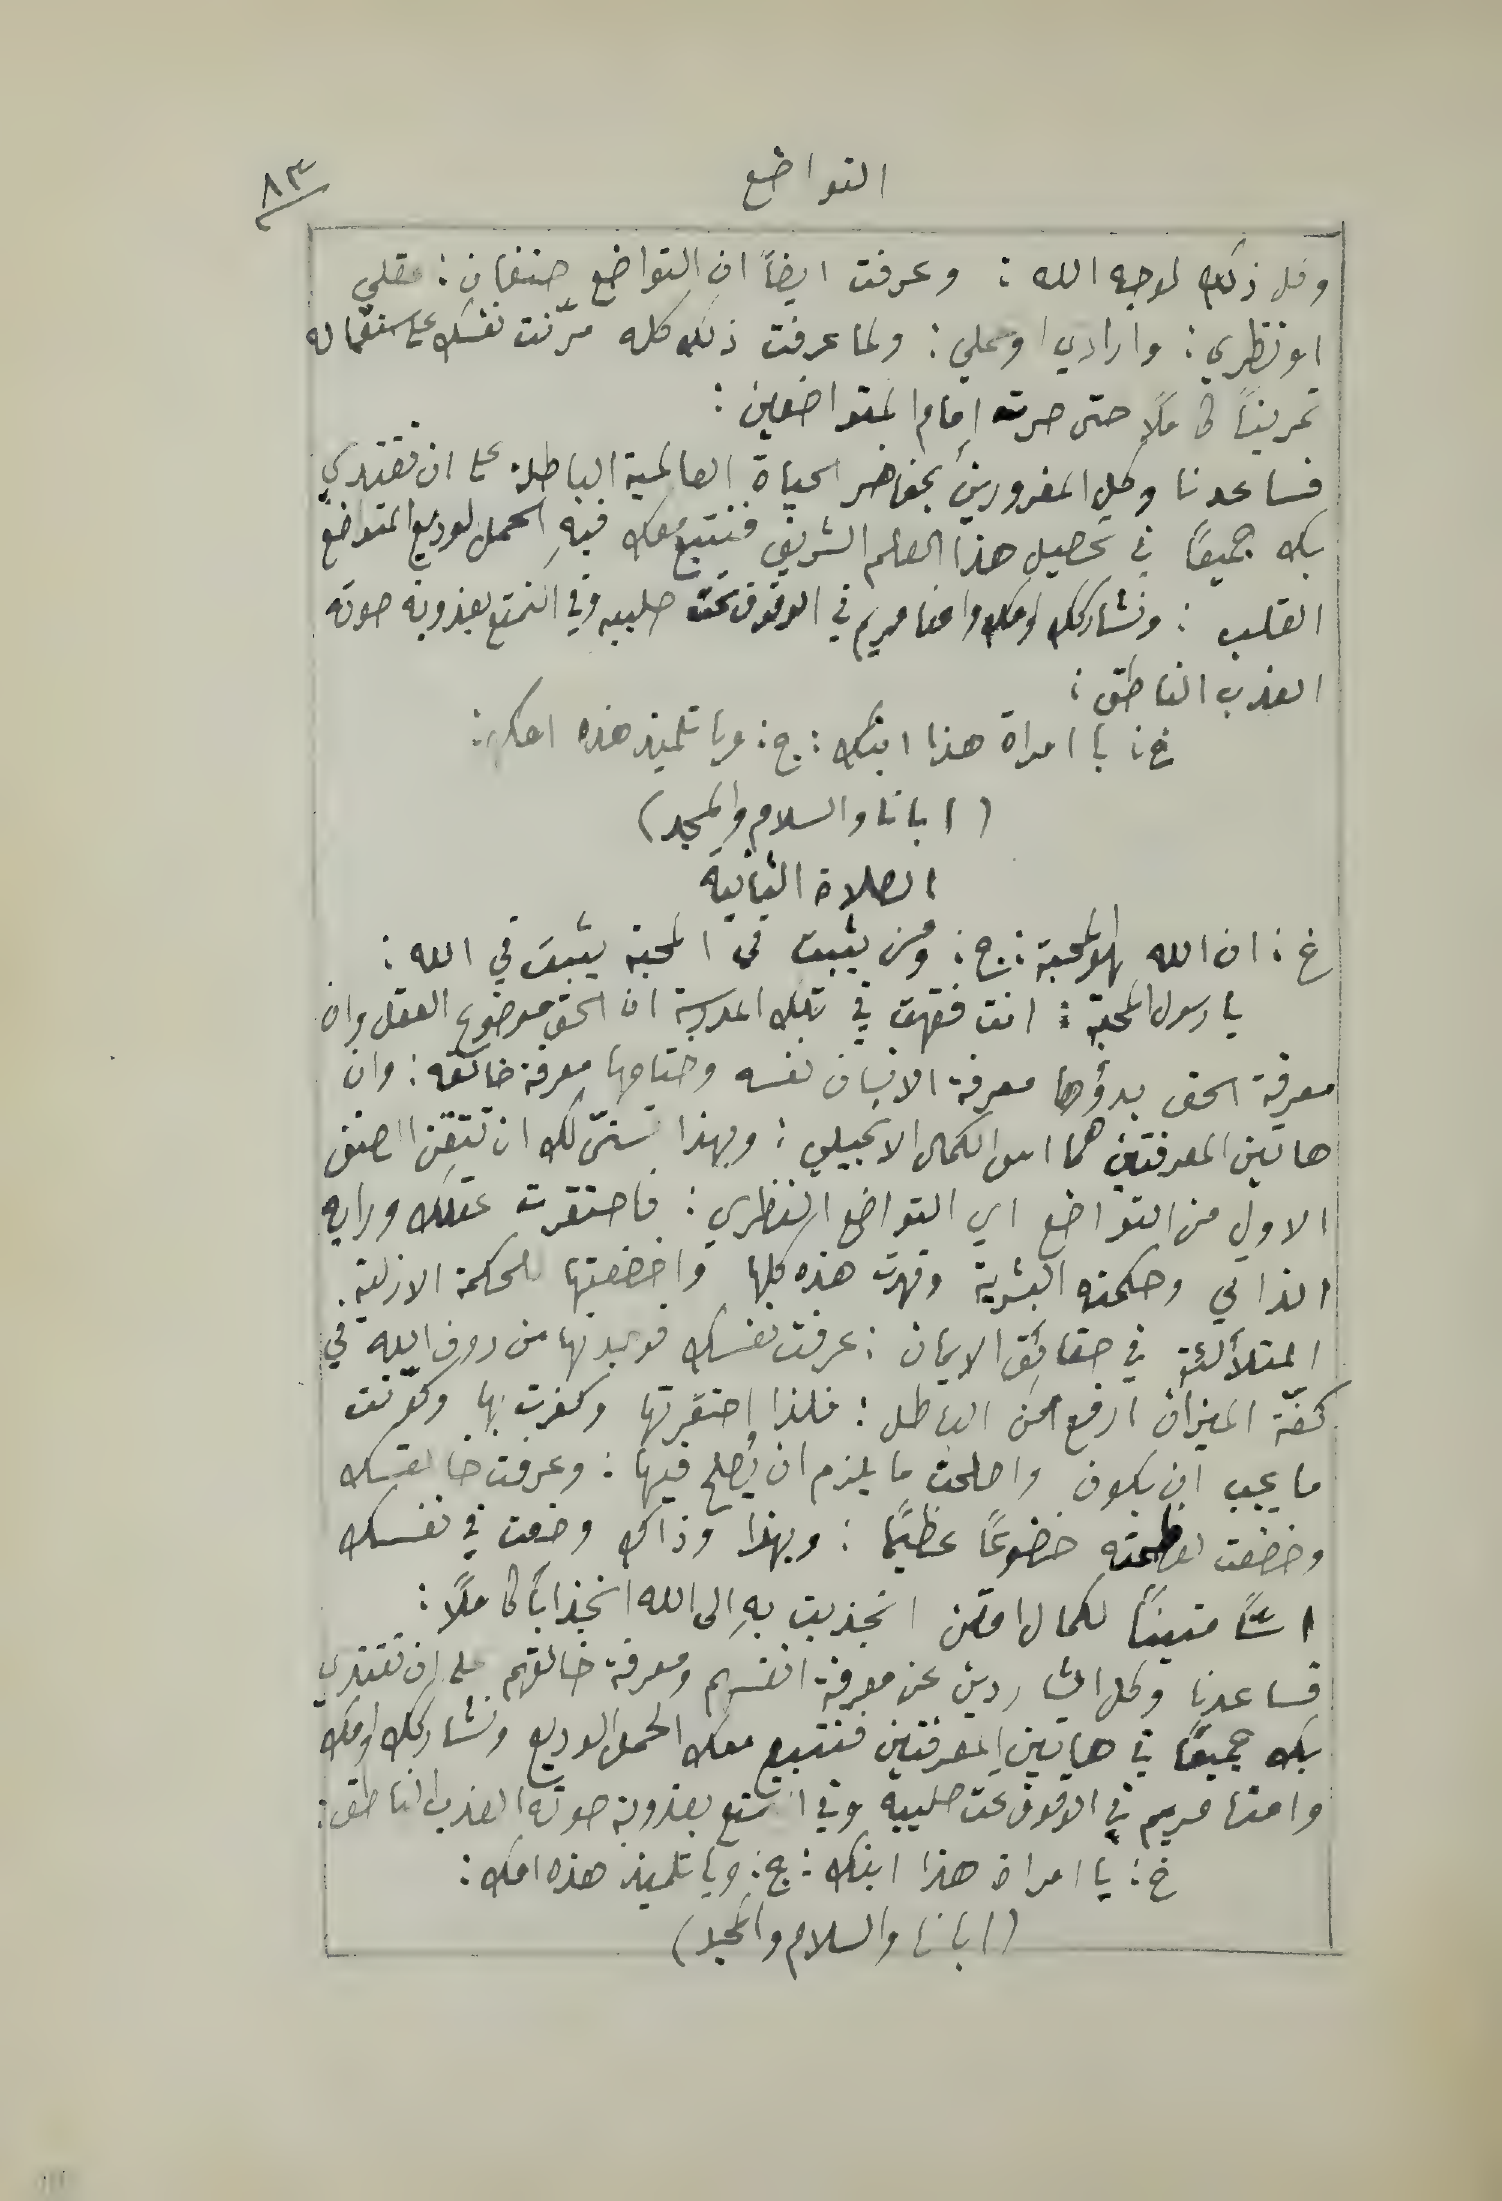 التواضع
٨٣
وكل ذلك لوجه الله : وعرفت ايضاً ان التواضع صنفان : عقلي
او نظري : وارادي او عملي : ولما عرفت ذلك كله مرّنت نفسك على استعماله
تمريناً كاملاً حتى صرت إمام المتواضعين :
فساعدنا وكل المغرورين بمفاخر الحياة العالمية الباطلة على ان نقتدي
بك جميعاً في تحصيل هذا العلم الشريف فنتبع معك فيهِ الحمل الوديع المتواضع
القلب : ونشاركك وامك وامنا مريم في الوقوف تحت صليبه وفي التمتع بعذوبة صوته
العذب الناطق :
خ : يا امراة هذا ابنك : ج : ويا تلميذ هذه امك :
(ابانا والسلام والمجد)
الصلاة الثانية
خ : ان الله لهو المحبة : ج : ومن يثبت في المحبة يثبت في الله :
يا رسول المحبة : انت فقهت في تلك المدرسة ان الحق موضوع العقل وان
معرفة الحق بدؤها معرفة الانسان نفسه وختامها معرفة خالقه : وان
هاتين المعرفتين هما اس الكمال الانجيلي : وبهذا تسنّى لك ان تتقن الصنف
الاول من التواضع اي التواضع النظري : فاحتقرت عقلك ورايه
الذاتي وحكمته البشرية وقهرت هذه كلها واخضعتها للحكمة الازلية
المتلألئة في حقائق الايمان : عرفت نفسك فوجدتها من دون الله في
كفّة الميزان ارفع من الباطل : فلذا احتقرتها وكفرت بها وكوّنت
ما يجب ان يكون واصلحت ما يلزم ان يُصلح فيها : وعرفت خالقك
وخضعت لعظمته خضوعاً عظيماً : وبهذا وذاك وضعت في نفسك
اسّاً متيناً لكمال امتن انجذبت بهِ الى الله انجذاباً كاملاً :
فساعدنا وكل الشاردين عن معرفة انفسهم ومعرفة خالقهم على ان نقتدي
بك جميعاً في هاتين المعرفتين فنتبع معك الحمل الوديع ونشاركك وامك
وامنا مريم في الوقوف تحت صليبه وفي التمتع بعذوبة صوته العذب الناطق :
خ : يا امراة هذا ابنك : ج : ويا تلميذ هذه امك :
(ابانا والسلام والمجد)